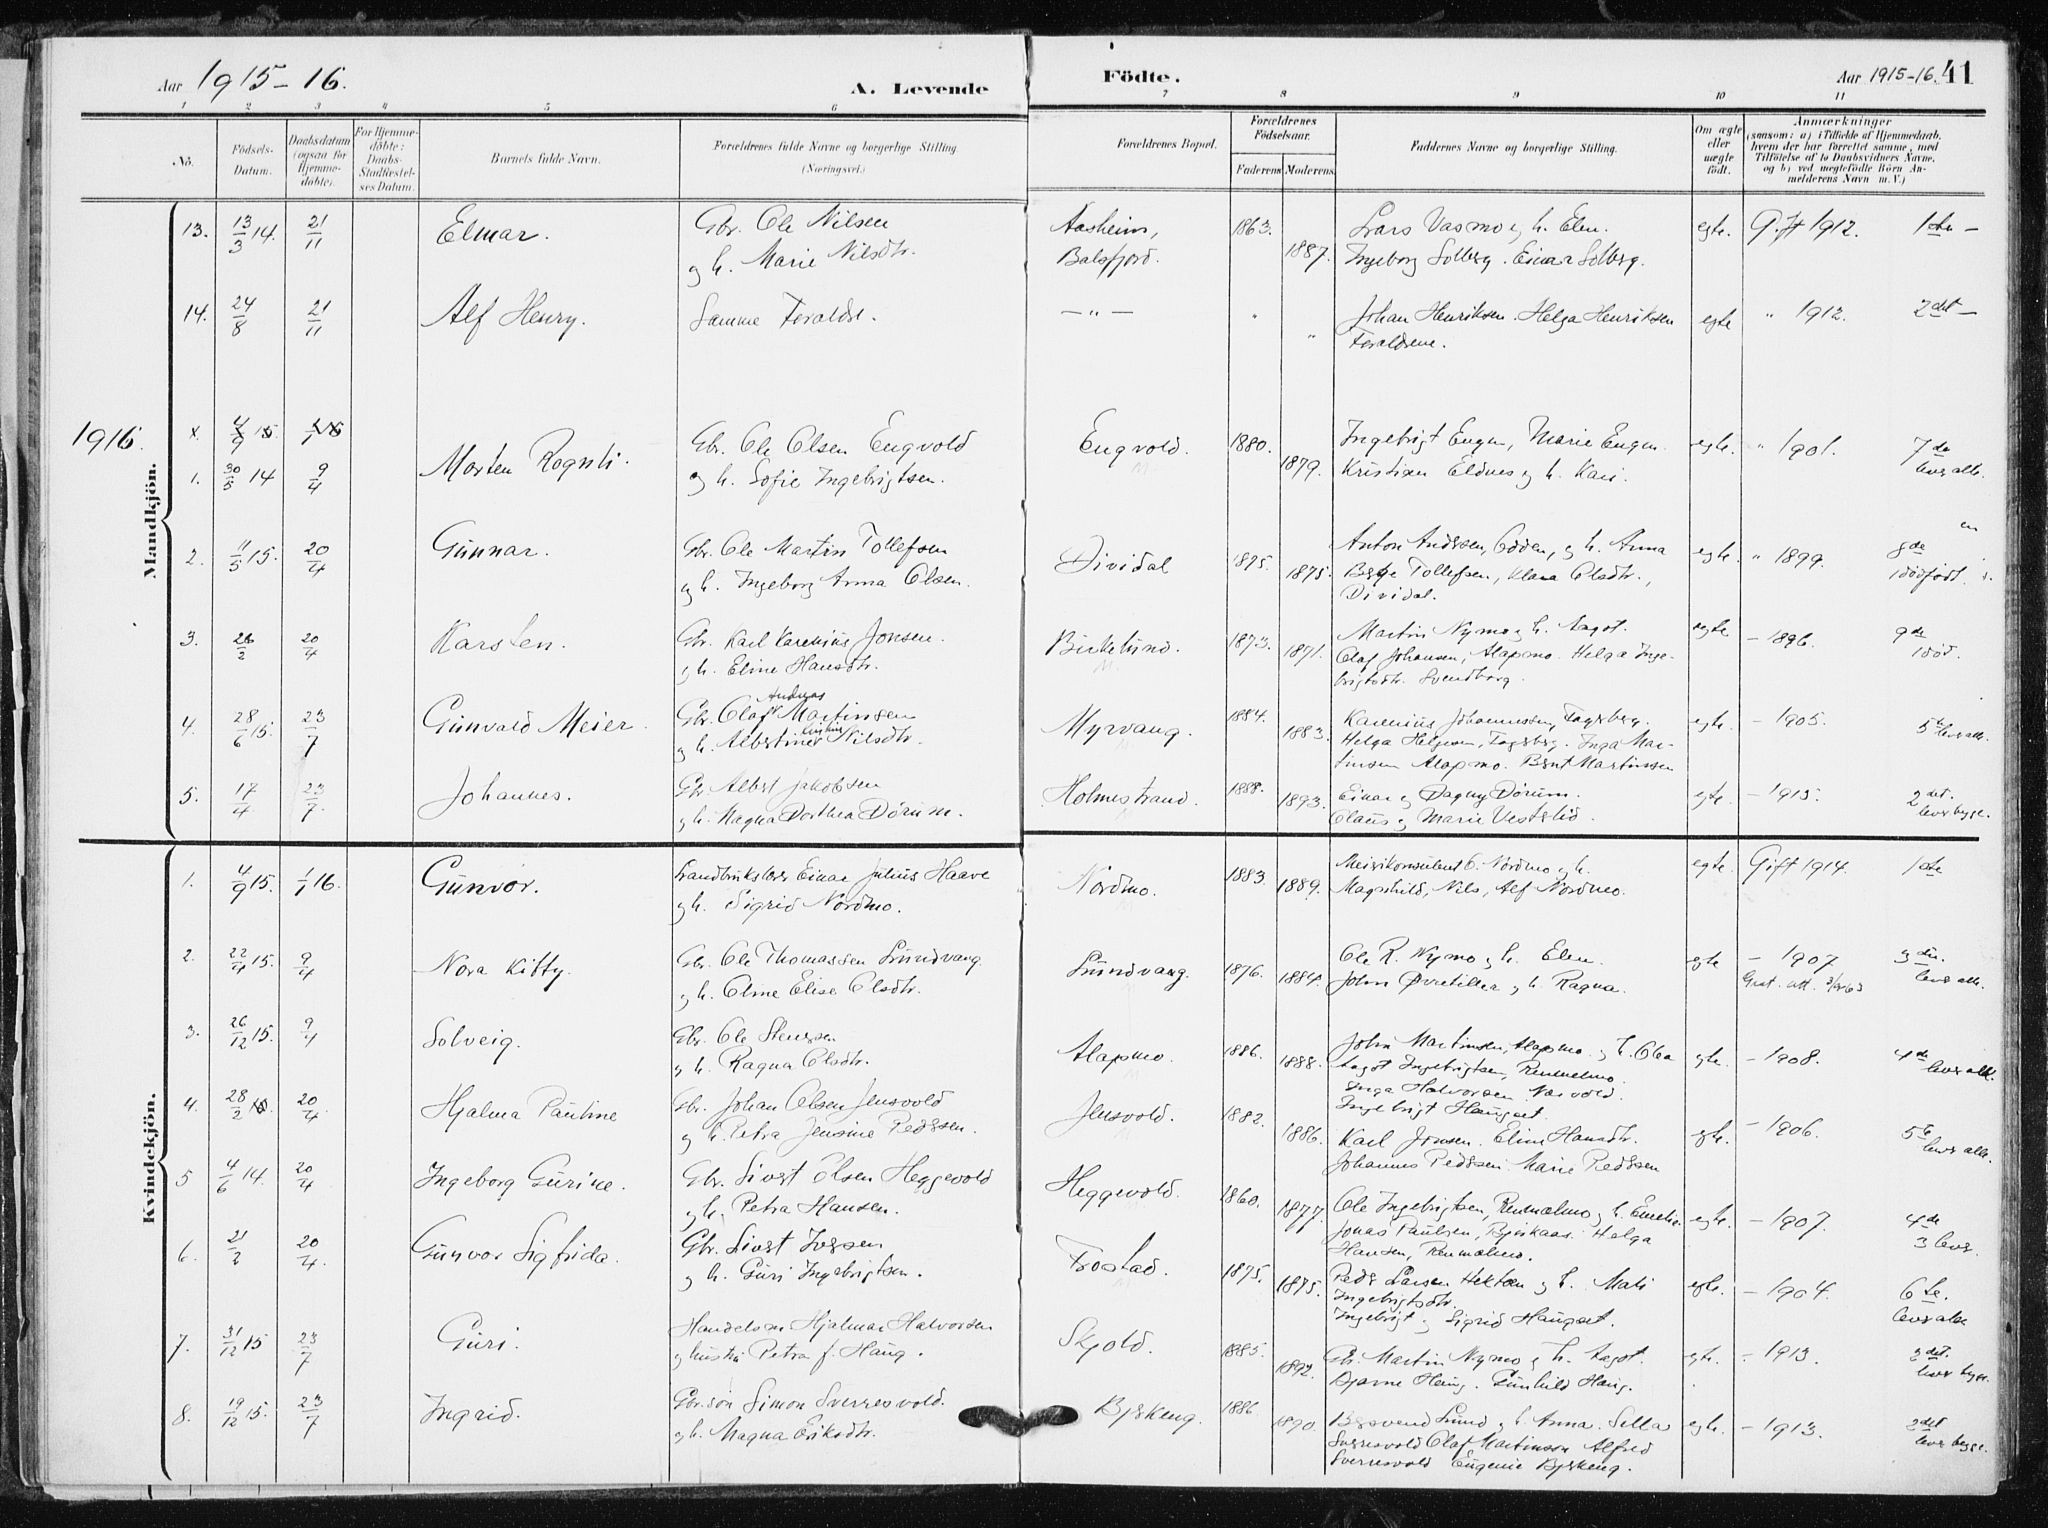 Aar 1915-16.
A. Levende
Födte.
Aar 1915-16. 41
1 2 3 4 5 6 7 8 9 10 11
No.
Födsels-Datum.
Daabsdatum (ogsaa for Hjemmedöbte).
For Hjemmedöbte: Daabs-Stadfestelses Datum.
Barnets fulde Navn.
Forældrenes fulde Navne og borgerlige Stilling. (Næringsvei.)
Forældrenes Bopæl.
Forældrenes Födselsaar.
Faderens Moderens
Faddernes Navne og borgerlige Stilling.
Om ægte eller uægte födt.
Anmærkninger
(saasom: a) i Tilfælde af Hjemmedaab, hvem der har forrettet samme, med Tilföielse af to Daabsvidners Navne, og b) ved uegtefödte Börn Anmelderens Navn m. V.)
Mandkjön.
13. 13/3 14. 21/11 Elmar. Gbr. Ole Nilsen
og h. Marie Nilsdtr.
Aasheim, Balsfjord. 1863. 1887.
Lars Vasmo og h. Elen.
Ingeborg Solberg. Einar Solberg.
egte. Gift 1912. 1ste -
14. 24/8 21/11 Alf Henry. Samme Foraldre.
— " — " "
Johan Henriksen. Helga Henriksen
Foraldrene.
egte " 1912. 2det -
1916.
x. 4/9 15 1/1 16
1. 30/5 14 9/4 Morten Rognli. Gbr. Ole Olsen Engvold
og h. Sofie Ingebrigtsen.
Engvold. 1880. 1879.
Ingebrigt Engen, Marie Engen.
Kristian Eldnes og h. Kari.
egte. " 1901. 7de lever alle.
2. 11/5 15. 20/4 Gunnar. Gbr. Ole Martin Tollefsen
og h. Ingeborg Anna Olsen.
Dividal 1875. 1875.
Anton Andersen, Odden, og h. Anna
Berte Tollefsen, Klara Olsdtr.,
Dividal.
egte. " 1899. 8de 1 dödfödt.
3. 26/2 20/4 Karsten. Gbr. Karl Karenius Jonsen.
og h. Eline Hansdtr.
Birkelund. 1873. 1871.
Martin Nymo og h. Aagot.
Olaf Johansen, Alapmo. Helga Inge-
brigtsdtr. Svendborg.
egte - 1896. 9de 1 död.
4. 28/6 15. 23/7 Gunvald Meier. Gbr. Olaf Andreas Martinsen
og h. Albertine Nilsdtr.
Myrvang. 1884. 1883.
Karenius Johannessen, Fagerberg.
Helga Helgesen, Fagerberg. Inga Mar-
tinsen Alapmo. Bernt Martinsen
egte. - 1905. 5te lever alle.
5. 17/4 23/7 Johannes. Gbr Albert Jakobsen
og h. Magna Dorthea Dörum.
Holmestrand. 1888. 1893.
Einar og Dagny Dörum.
Claus og Marie Vestslid.
egte. - 1915. 2det. lever begge.
Kvindekjön.
1. 4/9 15. 1/1 16. Gunvor. Landbrukslærer Einar Julius Haave
og h. Sigrid Nordmo.
Nordmo. 1883. 1889.
Meierikonsulent O. Nordmo og h.
Magnhild, Nils, Alf Nordmo.
egte Gift 1914. 1ste
2. 22/4 15. 9/4 Nora Kitty. Gbr. Ole Thomassen Lundvang
og h. Oline Elise Olsdtr.
Lundvang. 1876. 1884.
Ole R. Nymo og h. Elen.
John Øvretillen og h. Ragna.
egte - 1907. 3die. lever alle.
3. 26/12 15. 9/4 Solveig. Gbr. Ole Stensen
og h. Ragna Olsdtr.
Alapmo. 1886. 1888.
John Martinsen, Alapmo og h. Olea
Aagot Ingebrigtsen, Rennelmo.
Inga Halvorsen Nervold.
Ingebrigt Hauget.
egte - 1908. 4de lever alle.
4. 28/2 20/4 Hjalma Pauline Gbr. Johan Olsen Jensvold
og h. Petra Jensine Pedersen.
Jensvold. 1882. 1886.
Karl Jonsen. Eline Hansdtr.
Johannes Pedersen. Marie Pedersen
egte. - 1906. 5te lever alle.
5 4/6 14. 20/4 Ingeborg Gurine. Gbr. Sivert Olsen Heggevold
og h. Petra Hansen.
Heggevold. 1860. 1877.
Ole Ingebrigtsen, Rennelmo og h. Emelie
Jonas Paulsen, Bjerkaas. Helga
Hansen, Rennelmo.
egte. - 1907. 4de 3 lever.
6. 21/2 20/4 Gunvor Sigfrida. Gbr. Sivert Iversen
og h. Guri Ingebrigtsen.
Frostad. 1875. 1875.
Peder Larsen Hektoen og h. Mali
Ingebrigtsdtr.
Ingebrigt og Sigrid Hauget.
egte. - 1904. 6te. lever alle
7. 31/12 15 23/7 Guri. Handelsm Hjalmar Halvorsen
og hustru Petra f. Haug.
Skjold. 1885. 1892.
Gbr. Martin Nymo og h. Aagot.
Bjarne Haug. Gunhild Haug.
egte. - 1913. 2det. lever begge.
8. 19/12 15. 23/7 Ingrid. Gbr.sön Simon Sverresvold.
og h. Magna Eriksdtr.
Bjerkeng. 1886 1890.
Berevend Lund og h. Anna. Sella
Sverresvold Olaf Martinsen Alfred
Sverresvold Eugenie Bjerkeng.
egte. - 1913. 2det lever begge.